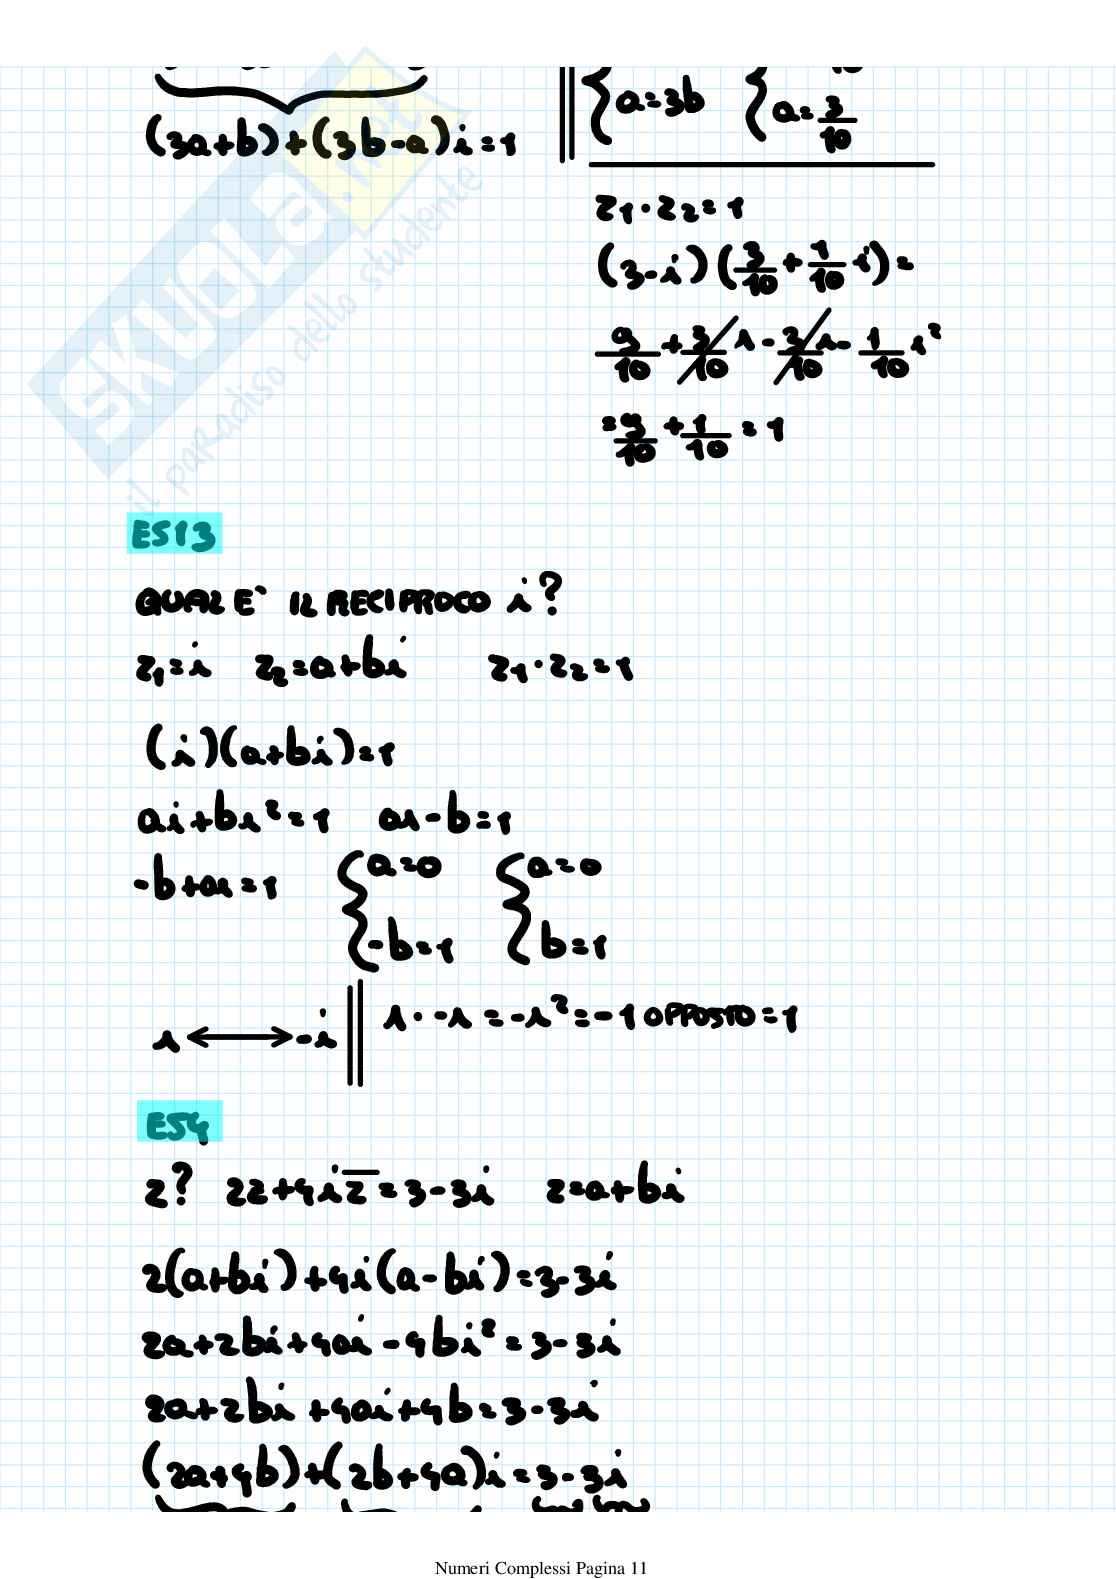 (3a+b)+(3b-a)i=1
{a=3b {a=3/10
z₁·z₂=1
(3-i)(3/10+1/10 i)=
9/10+3/10 i-3/10 i-1/10 i²
=9/10+1/10=1
SKUOLA.net
il paradiso dello studente
ES13
QUAL E` IL RECIPROCO i?
z₁=i z₂=a+bi z₁·z₂=1
(i)(a+bi)=1
ai+bi²=1 ai-b=1
-b+ai=1 {a=0 {a=0
-b=1 b=1
i⟷-i || i·-i=-i²=-1 OPPOSTO=1
ES4
z? 2z+4iz̅=3-3i z=a+bi
2(a+bi)+4i(a-bi)=3-3i
2a+2bi+4ai-4bi²=3-3i
2a+2bi+4ai+4b=3-3i
(2a+4b)+(2b+4a)i=3-3i
Numeri Complessi Pagina 11